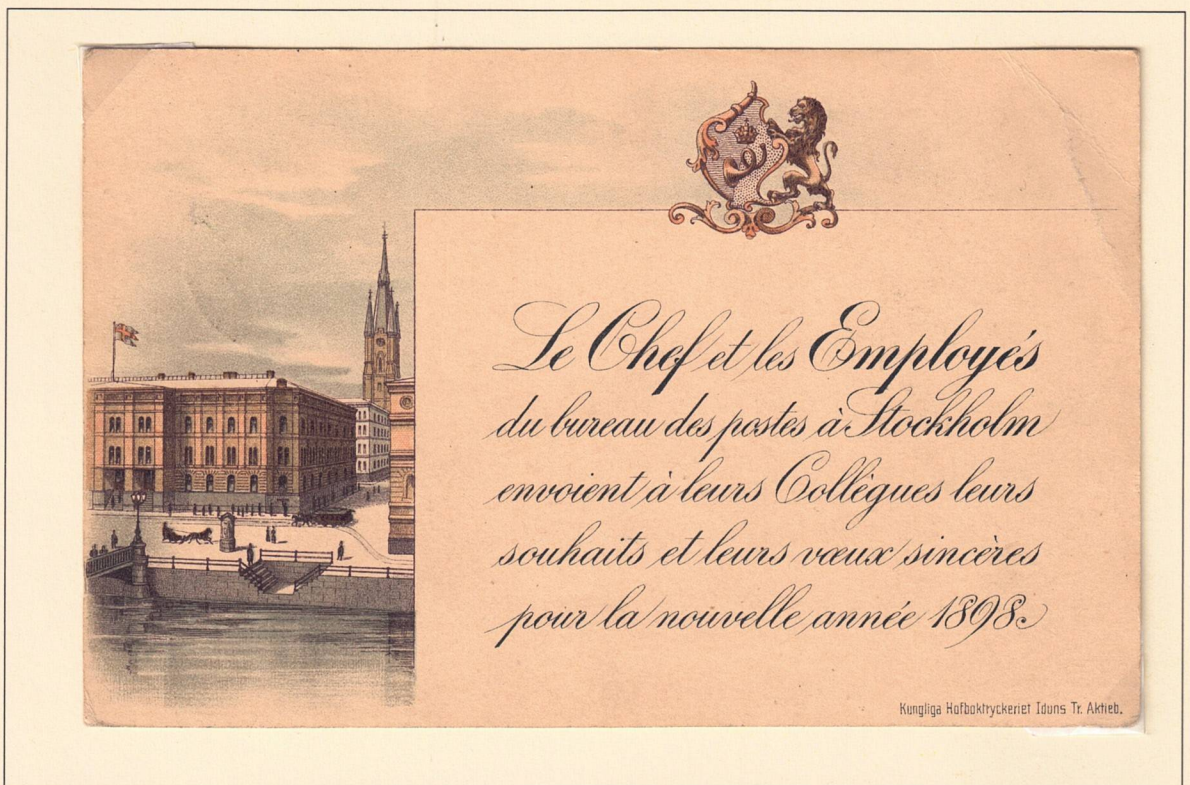 Le Chef et les Employés
du bureau des postes à Stockholm
envoient à leurs Collègues leurs
souhaits et leurs vœux sincères
pour la nouvelle année 1898.
Kungliga Hofboktryckeriet Iduns Tr. Aktieb.